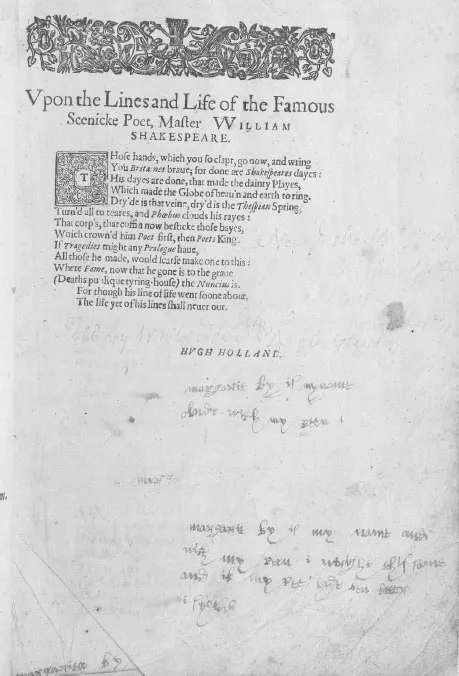 Vpon the Lines and Life of the Famous
Scenicke Poet, Master WILLIAM
SHAKESPEARE.
THose hands, which you so clapt, go now, and wring
You Britaines braue; for done are Shakespeares dayes:
His dayes are done, that made the dainty Playes,
Which made the Globe of heau'n and earth to ring.
Dry'de is that veine, dry'd is the Thespian Spring,
Turn'd all to teares, and Phœbus clouds his rayes:
That corp's, that coffin now besticke those bayes,
Which crown'd him Poet first, then Poets King.
If Tragedies might any Prologue haue,
All those he made, would scarse make one to this:
Where Fame, now that he gone is to the graue
(Deaths publique tyring-house) the Nuncius is.
For though his line of life went soone about,
The life yet of his lines shall neuer out.
HVGH HOLLAND.
margarit by is my name
with my pen i
margarit by is my name and
with my pen i this same
and if my pen
margarit by